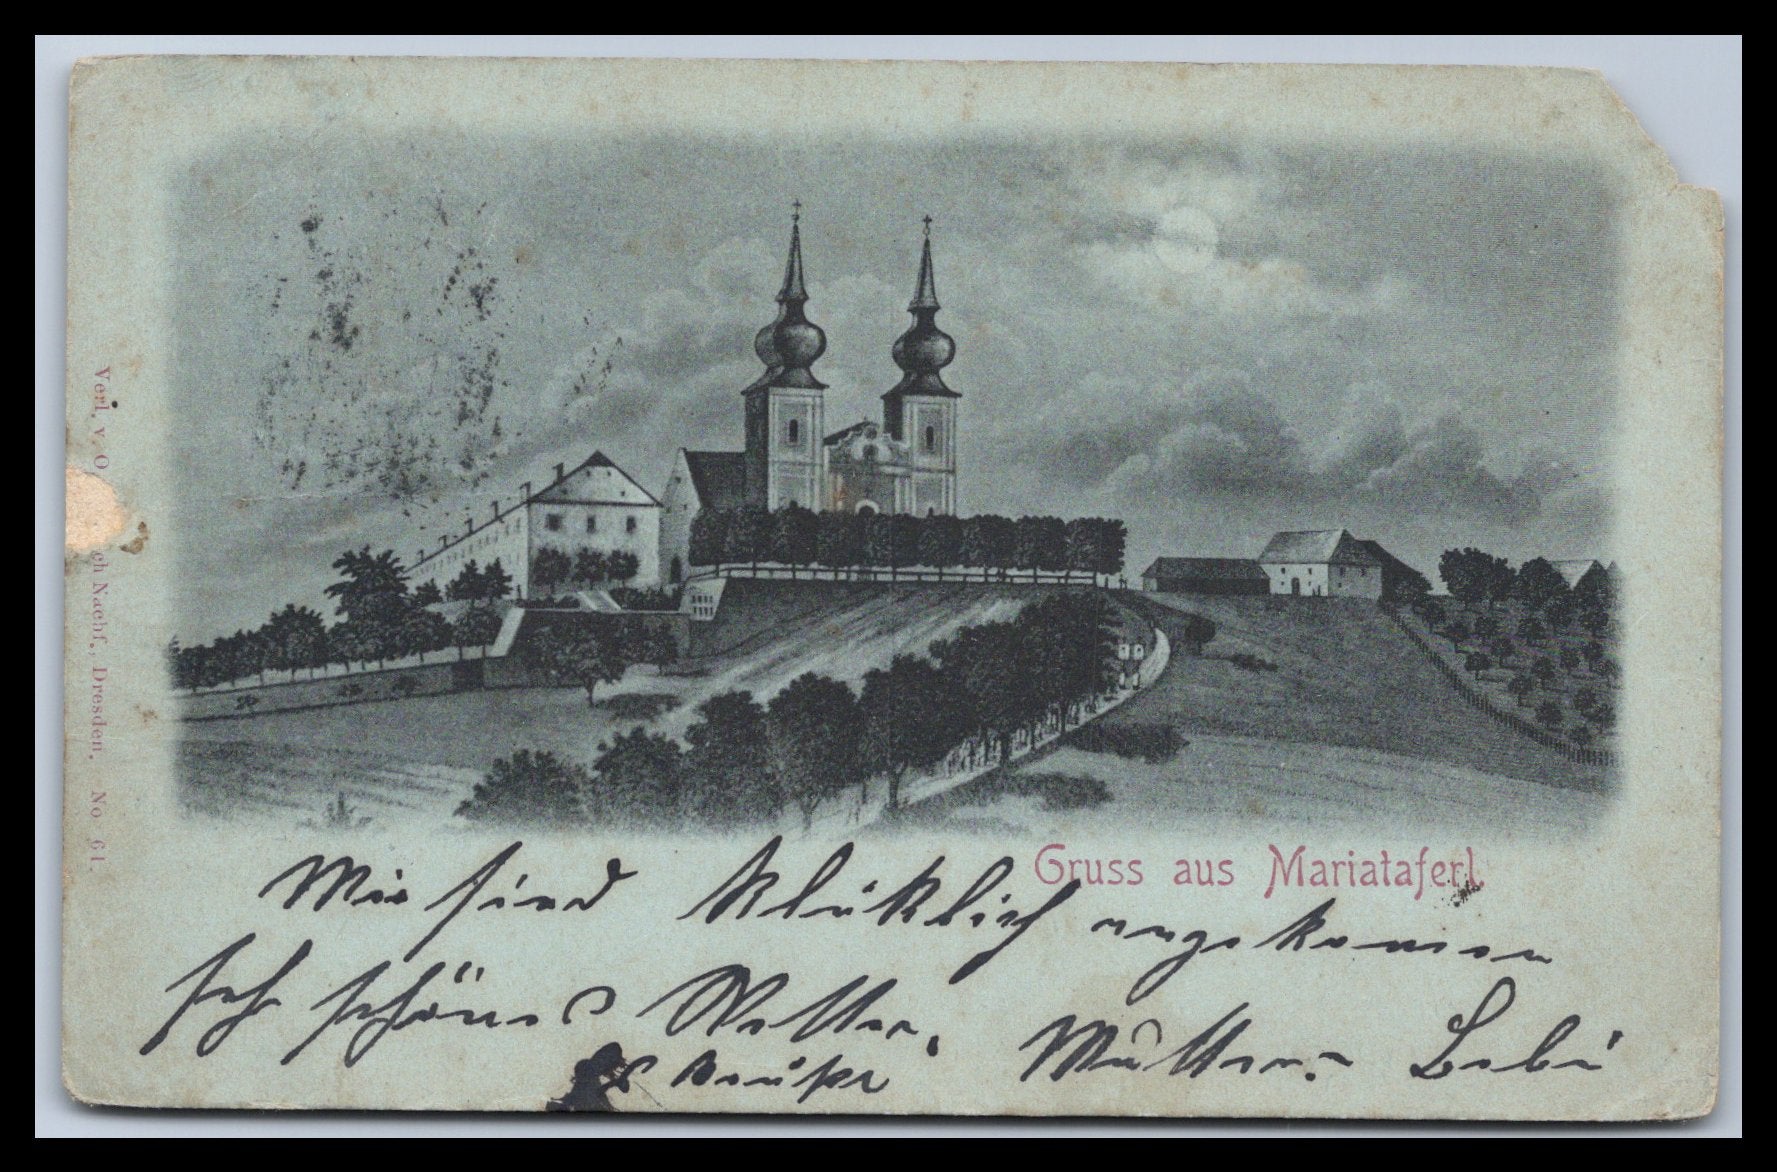 Verl. v. O ch Nachf., Dresden. No 61.
Gruss aus Mariataferl.
Wir sind Glüklich angekommen
sehr schönes Wetter.
Mutter